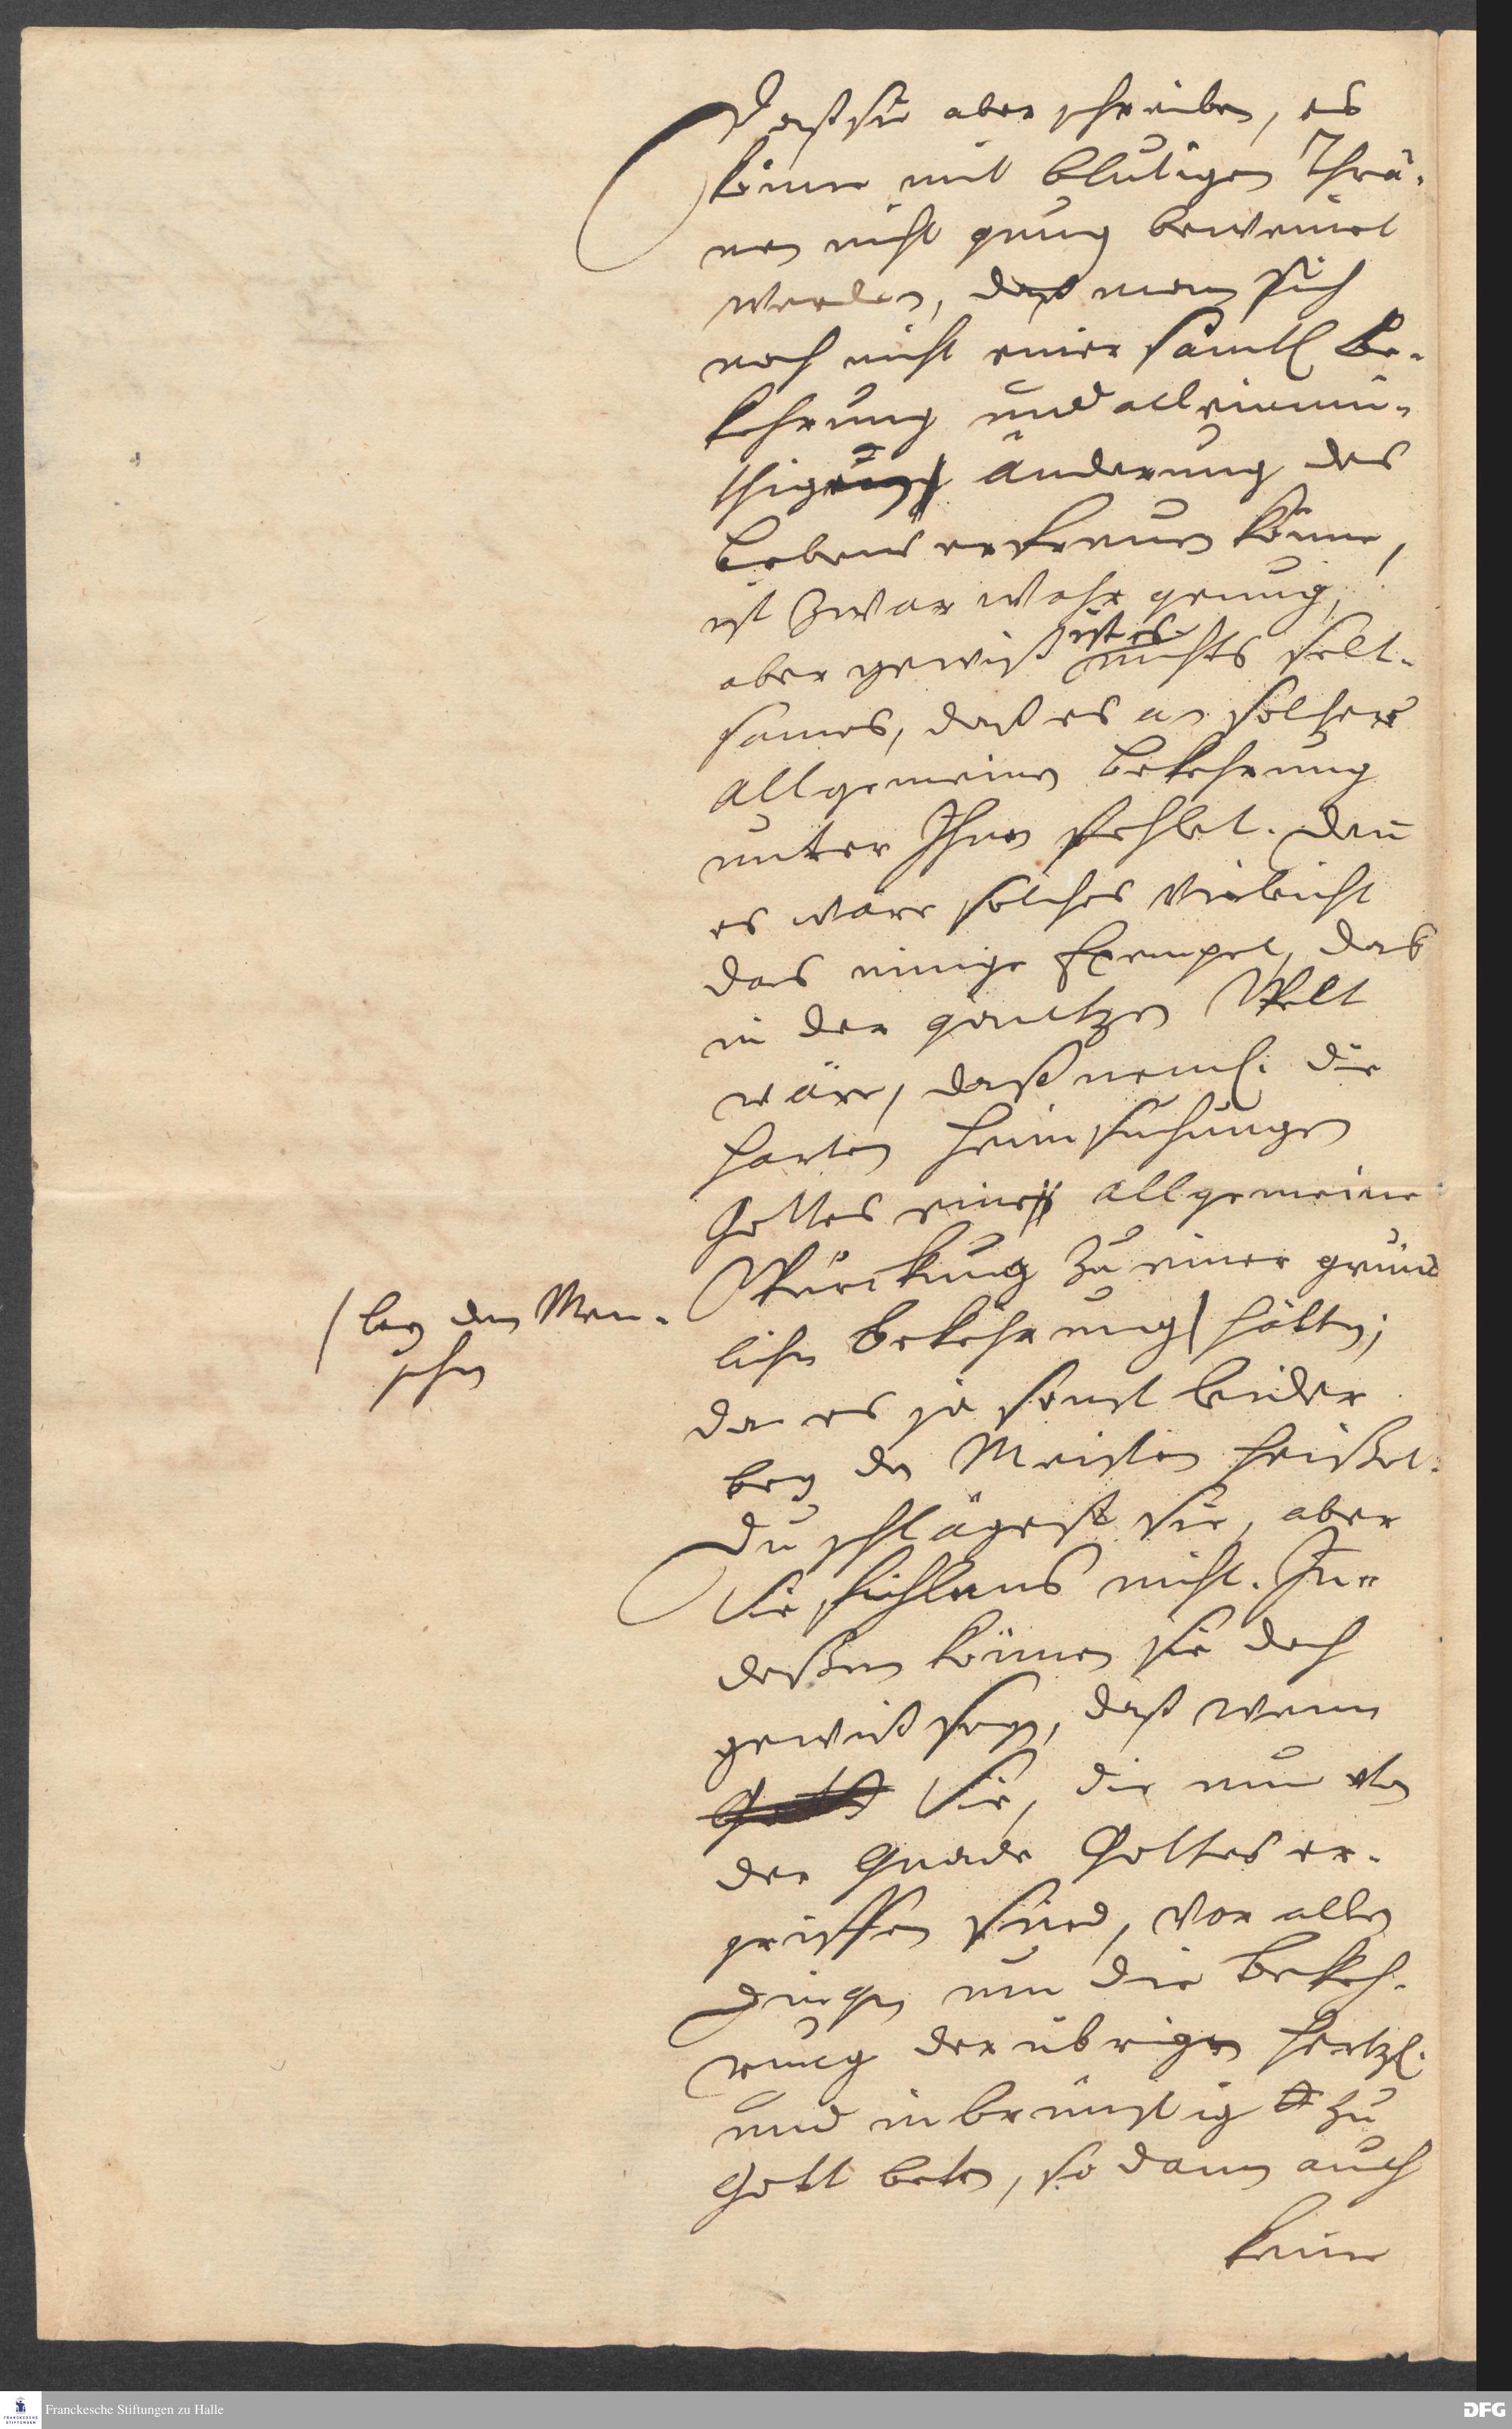 Daß sie aber schreiben, es
könne mit blutigen Thrä-
nen nicht gnung beweinet
werden, daß man sich
noch nicht einer sämtl Be-
kehrung und alleinmü-
thigen änderung des
Lebens erfreuen könne,
ist zwar wahr genung,
aber gewiß ist es nichts selt-
sames, daß es an solcher
allgemeinen Bekehrung
unter Ihnen fehlet. Deñ
es wäre solches vieleicht
das einige Exempel, das
in der gantzen Welt
wäre, daß neml. die
harten Heimsuchungen
Gottes eine allgemeine
Würckung zu einer gründ
lichen Bekehrung hätten;
/ bey den Men-
schen
da es ja sonst leider
bey den Meisten heißet:
Du schlägest sie, aber
Sie fühlens nicht. In-
deßen können sie doch
gewiß seyn, daß wenn
Sie, die nun von
der Gnade Gottes er-
griffen sind, vor allen
Dingen um die Bekeh-
rung der übrigen hertzl.
und inbrünstig zu
Gott beten, so dann auch
keine
Franckesche Stiftungen zu Halle
DFG